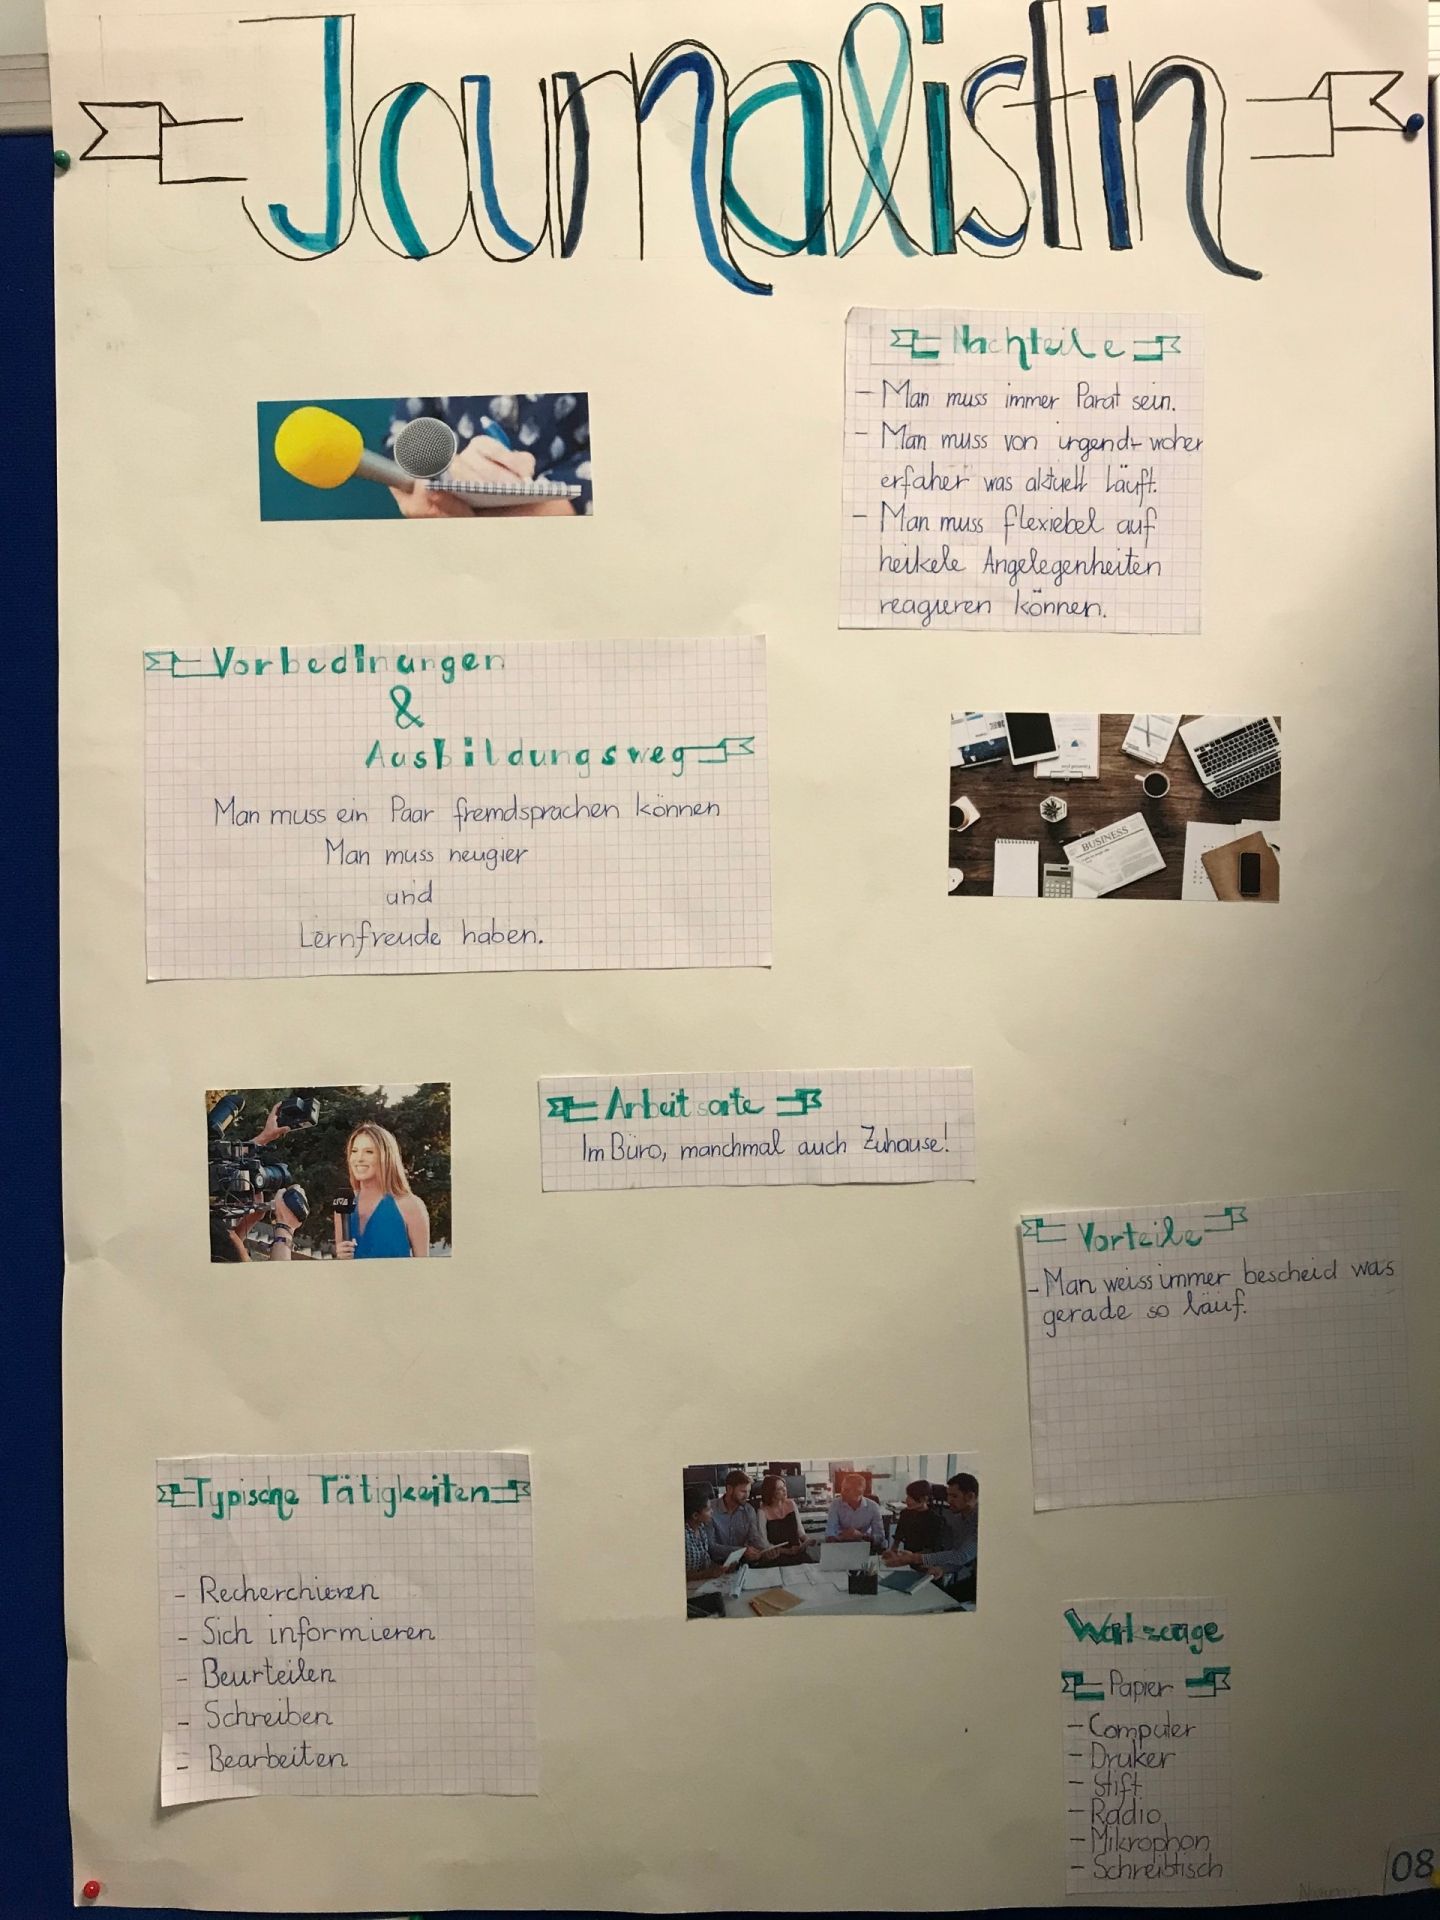 Journalistin
Nachteile
- Man muss immer Parat sein.
- Man muss von irgend-woher
erfaher was aktuell läuft.
- Man muss flexiebel auf
heikele Angelegenheiten
reagieren können.
Vorbedinungen
&
Ausbildungsweg
Man muss ein Paar fremdsprachen können
Man muss neugier
und
Lernfreude haben.
BUSINESS
Arbeitsorte
Im Büro, manchmal auch Zuhause!
Vorteile
- Man weiss immer bescheid was
gerade so läuf.
Typische Tätigkeiten
- Recherchieren
- Sich informieren
- Beurteilen
- Schreiben
- Bearbeiten
Papier
- Computer
- Druker
- Stift
- Radio
- Mikrophon
- Schreibtisch
08